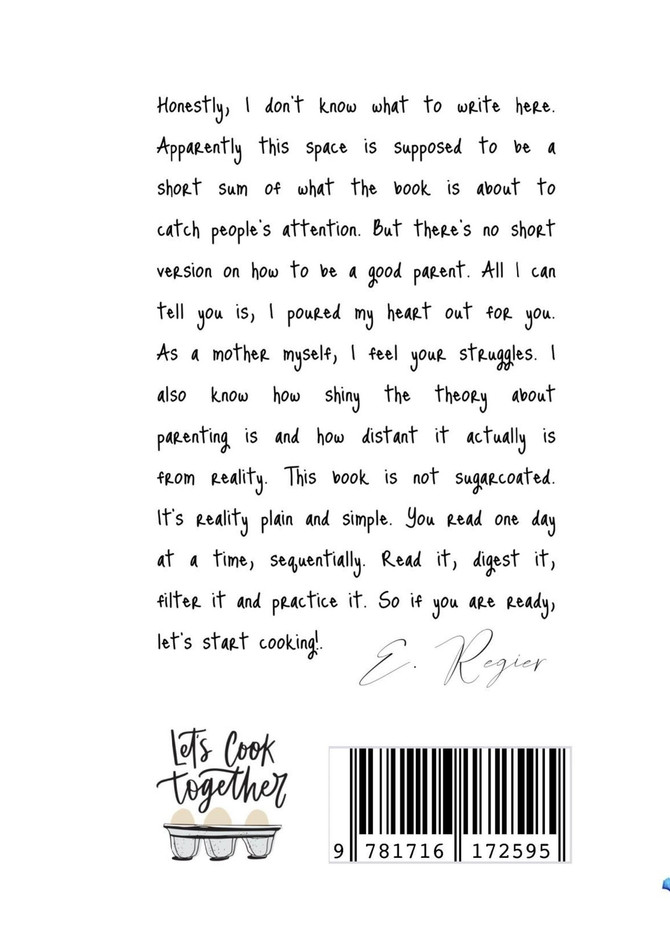 Honestly, I don't know what to write here.
Apparently this space is supposed to be a
short sum of what the book is about to
catch people's attention. But there's no short
version on how to be a good parent. All I can
tell you is, I poured my heart out for you.
As a mother myself, I feel your struggles. I
also know how shiny the theory about
parenting is and how distant it actually is
from reality. This book is not sugarcoated.
It's reality plain and simple. You read one day
at a time, sequentially. Read it, digest it,
filter it and practice it. So if you are ready,
let's start cooking!.
E. Regier
Let's Cook
together
9 781716 172595